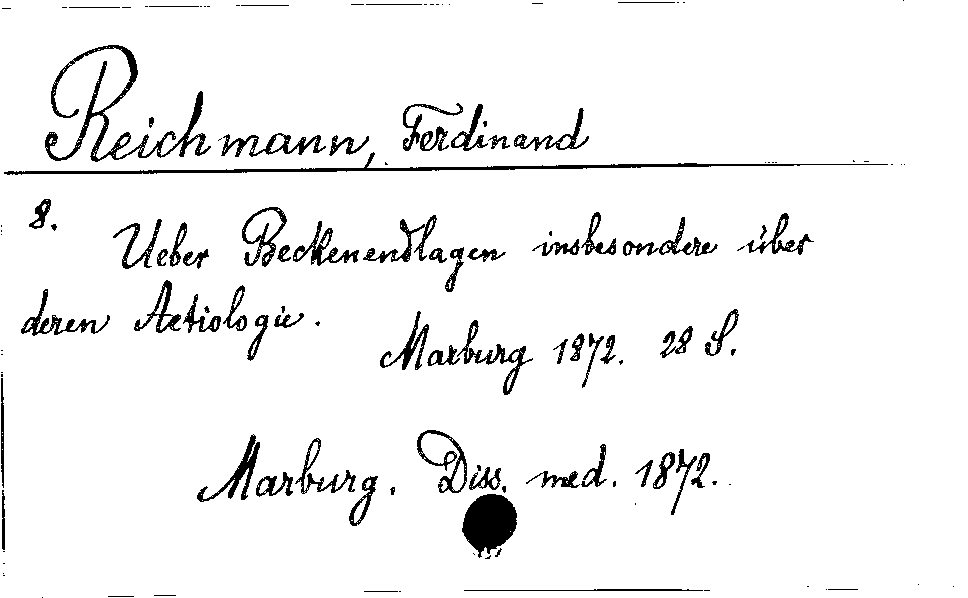 Reichmann, Ferdinand
8.
Ueber Beckenendlagen insbesondere über
deren Aetiologie.
Marburg 1872. 28 S.
Marburg. Diss. med. 1872.